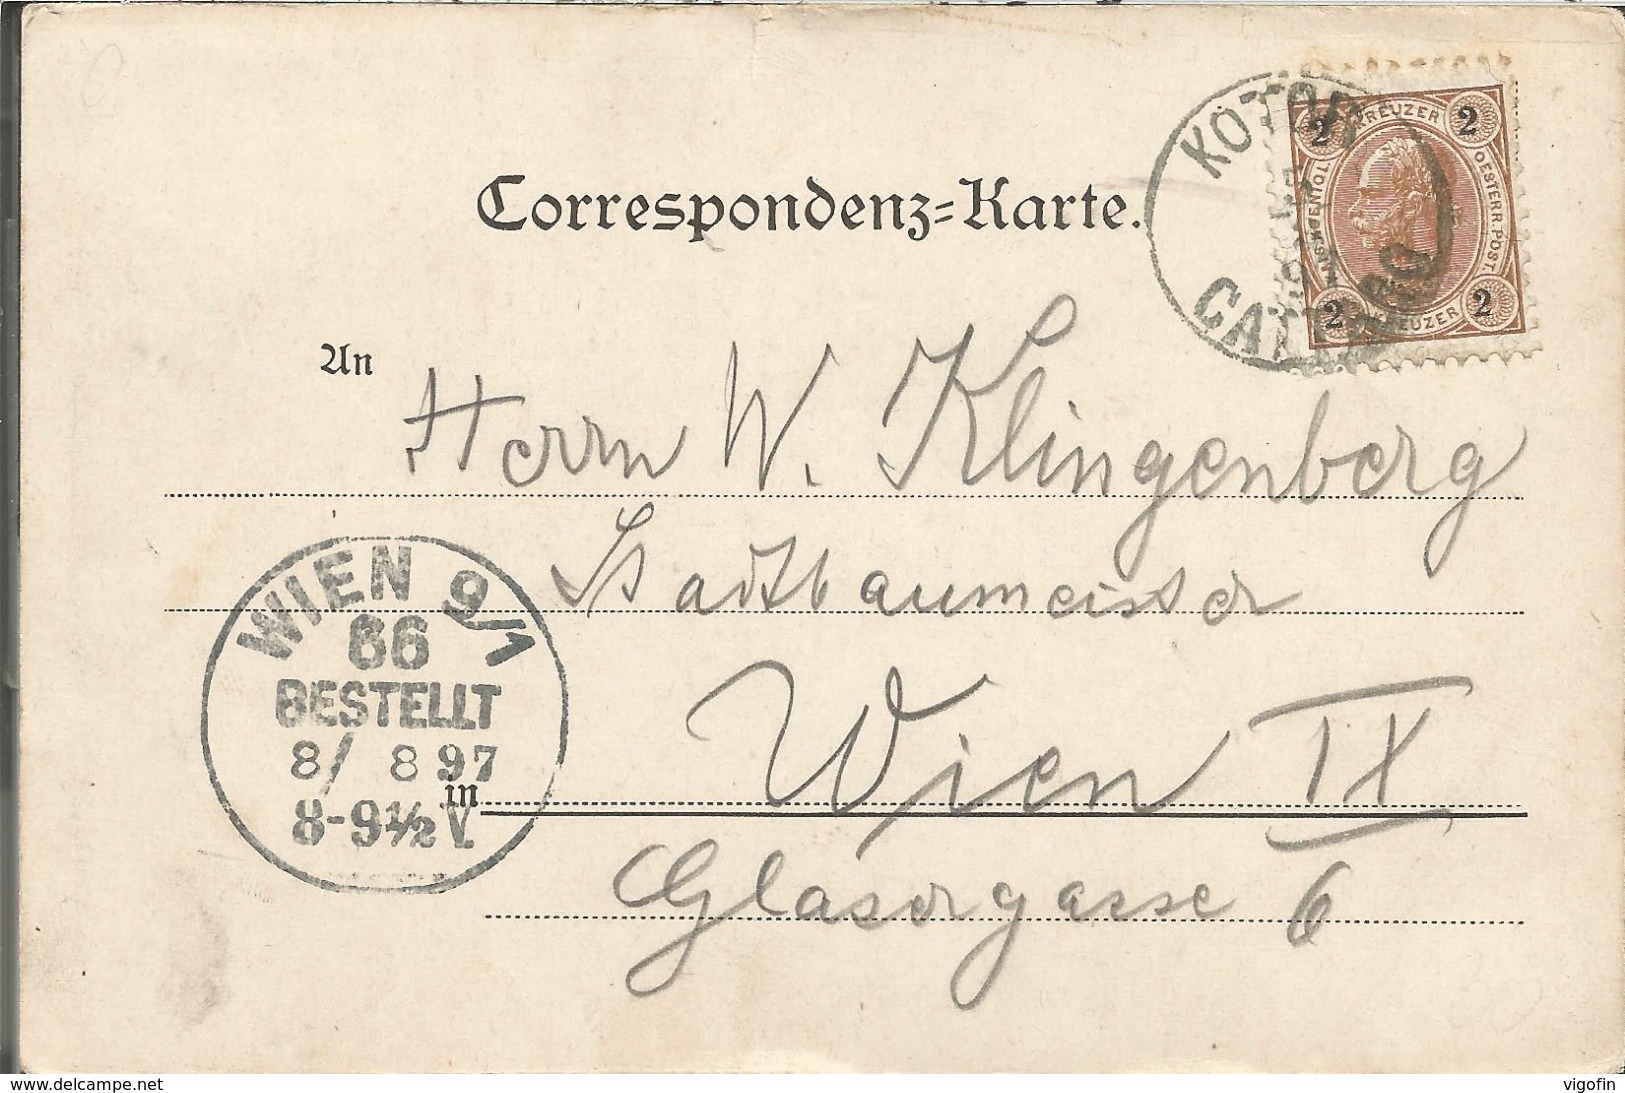 Correspondenz-Karte.
KOTOR
CATTARO
2 KREUZER 2
OESTERR. POST.
2 KREUZER 2
An
Herrn W. Klingenberg
Stadtbaumeister
WIEN 9/1
66
BESTELLT
8/ 8 97
8-9½ V.
in
Wien IX
Glasergasse 6
www.delcampe.net
vigofin